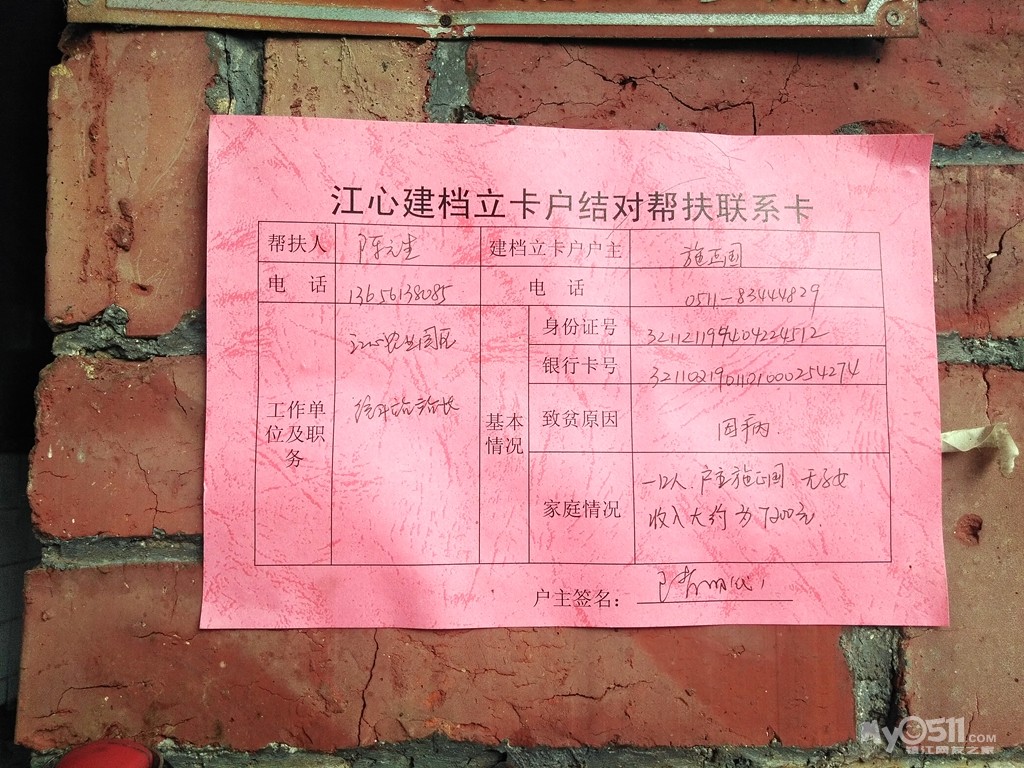 江心建档立卡户结对帮扶联系卡
帮扶人 陈元生 建档立卡户户主 施正国
电 话 13656138085 电 话 0511-83444829
工作单位及职务
江心农业园区
站长
基本情况
身份证号 321121194404224512
银行卡号 3211021901101000254274
致贫原因 因病.
家庭情况
一口人.户主施正国 无子女
收入大约为7200元.
户主签名：
My0511.COM
镇江网友之家